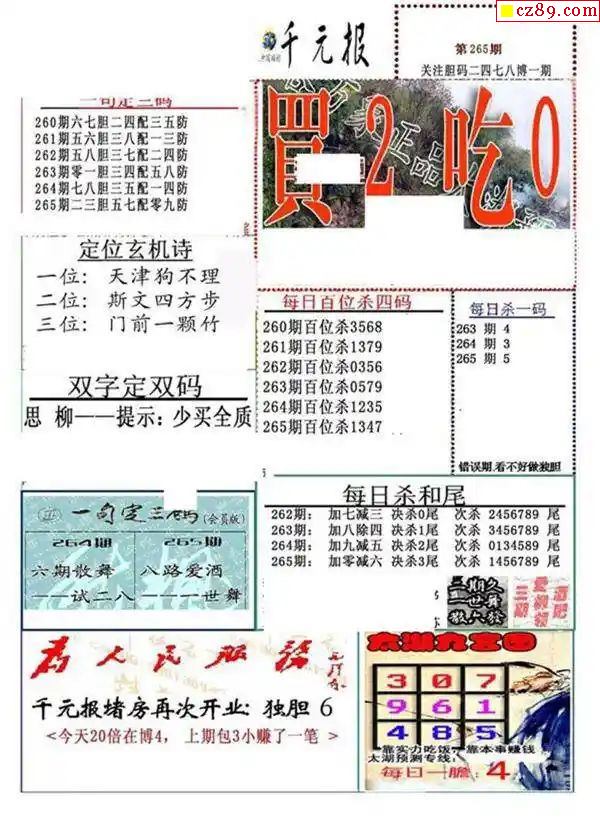 cz89.com
千元报
第265期
关注胆码二四七八博一期
一句定三码
260期六七胆二四配三五防
261期五六胆三八配一三防
262期五八胆三七配二四防
263期零一胆三四配五八防
264期七八胆三五配一四防
265期二三胆五七配零九防
買2吃0
定位玄机诗
一位: 天津狗不理
二位: 斯文四方步
三位: 门前一颗竹
双字定双码
思 柳——提示: 少买全质
每日百位杀四码
260期百位杀3568
261期百位杀1379
262期百位杀0356
263期百位杀0579
264期百位杀1235
265期百位杀1347
每日杀一码
263 期 4
264 期 3
265 期 5
错误期.看不好做独胆
每日杀和尾
262期: 加七减三 决杀0尾 次杀 2456789 尾
263期: 加八除四 决杀1尾 次杀 3456789 尾
264期: 加九减五 决杀2尾 次杀 0134589 尾
265期: 加零减六 决杀3尾 次杀 1456789 尾
一句定三码(会员版)
264期
六期散舞
——试二八
265期
八路爱酒
———世舞
三期久
一世舞
散六發
为人民服务
千元报堵房再次开业: 独胆 6
<今天20倍在博4, 上期包3小赚了一笔 >
太湖九宫图
3 0 7
9 6 1
4 8 5
靠实力吃饭,靠本事赚钱
太湖预测专线:
每日一胆: 4